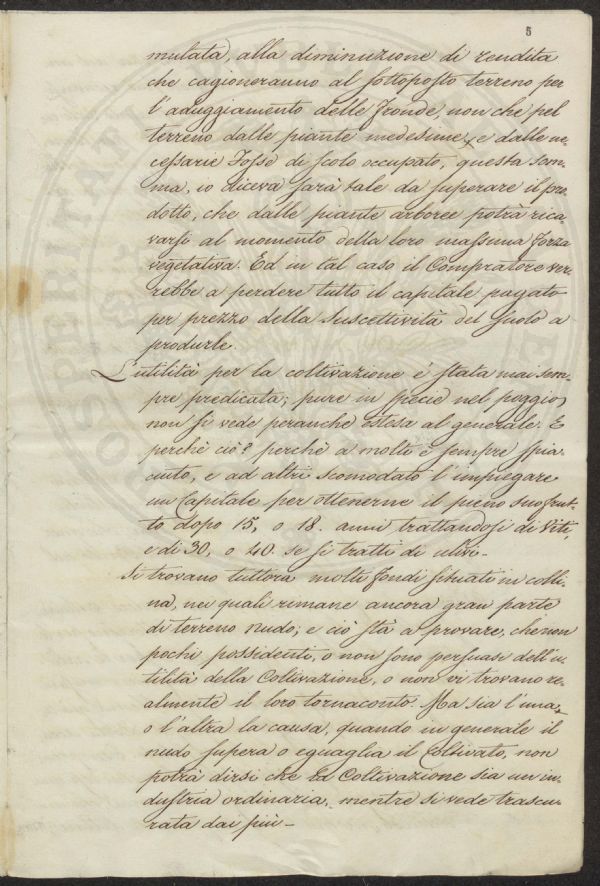 5
mutata, alla diminuzione di rendita
che cagioneranno al sottoposto terreno per
l'aduggiamento delle fronde, non che pel
terreno dalle piante medesime, e dalle ne-
cessarie Fosse di scolo occupato, questa som-
ma, io diceva sarà tale da superare il pro-
dotto, che dalle piante arboree potrà rica
varsi al momento della loro massima forza
vegetativa. Ed in tal caso il Compratore ver
rebbe a perdere tutto il capitale pagato
per prezzo della suscettività del suolo a
produrle.
L'utilità per la coltivazione è stata mai sem-
pre predicata; pure in specie nel poggio,
non si vede peranche estesa al generale. E
perchè ciò? perchè a molti è sempre spia-
ciuto, e ad altri scomodato l'impiegare
un Capitale per ottenerne il pieno suo frut-
to dopo 15, o 18. anni trattandosi di Viti,
e di 30, o 40. se si tratti di ulivi.-
Si trovano tuttora molti fondi situati in colli-
na, nei quali rimane ancora gran parte
di terreno nudo; e ciò stà a provare, che non
pochi possidenti, o non sono persuasi dell'u-
tilità della Coltivazione, o non vi trovano re-
almente il loro tornaconto. Ma sia l'una,
o l'altra la causa, quando in generale il
nudo supera o eguaglia il Coltivato, non
potrà dirsi che la Coltivazione sia un in-
dustria ordinaria, mentre si vede trascu-
rata dai più-
PROSPERITATI